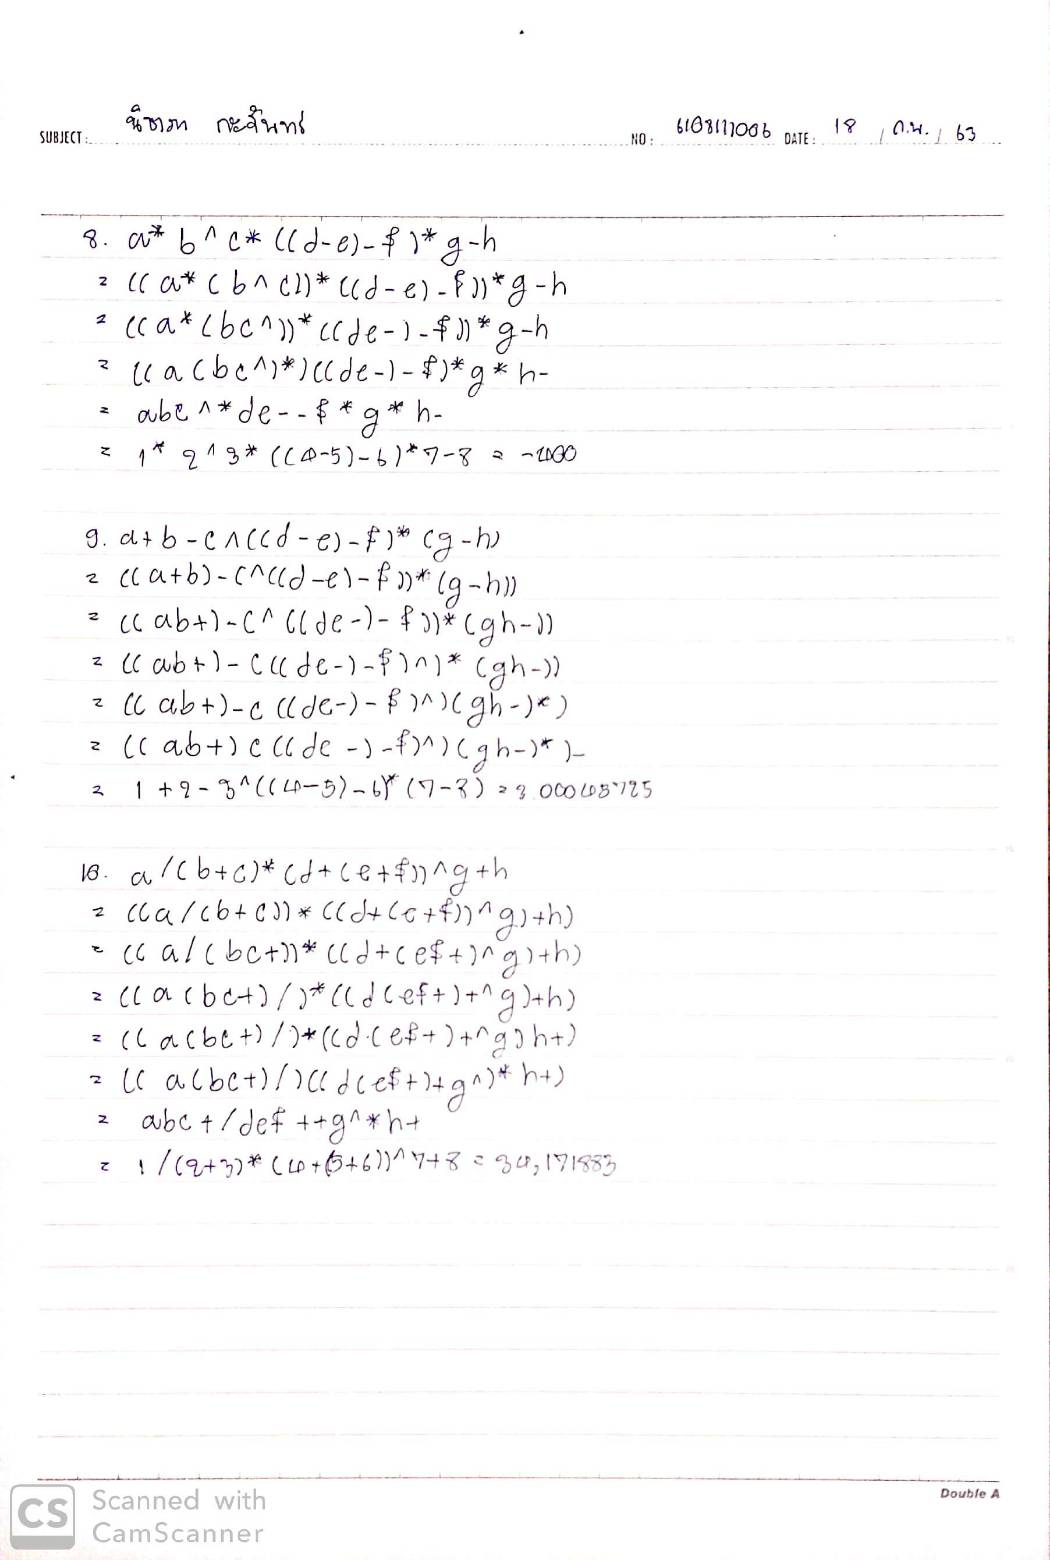 SUBJECT: กะจันทร์ NO: 6108111006 DATE: 18 / ก.พ. / 63
8. a* b ^ c* ((d-e)-f )* g-h
= (( a* ( b ^ c))* ((d-e)-f ))*g-h
= ((a* (bc^))* ((de-)-f ))* g-h
= (( a (bc^)*)((de-)-f)*g* h-
= abc ^*de--f * g* h-
= 1* 2^3* ((4-5)-6)*7-8 =
9. a+b-c^((d-e)-f)* (g-h)
= ((a+b)-(^((d-e)-f ))* (g-h))
= (( ab+)-c^ ((de-)-f ))* (gh-))
= (( ab+)-c((de-)-f)^)* (gh-))
= (( ab+)-c ((de-)-f )^)(gh-)*)
= (( ab+) c ((de-)-f)^)(gh-)* )-
= 1 +2-3^((4-5)-6)* (7-8) =
10. a/(b+c)* (d+(e+f))^g+h
= ((a/(b+c))* ((d+(e+f))^g)+h)
= (( a/(bc+))* ((d+(ef+)^g)+h)
= (( a (bc+)/)*((d(ef+)+^g)+h)
= (( a(bc+)/)*((d(ef+)+^g)h+)
= (( a(bc+)/)((d(ef+)+g^)* h+)
= abc+/def ++g^*h+
= 1/(2+3)* (4+(5+6))^7+8 = 34,171883
Double A
CS Scanned with
CamScanner